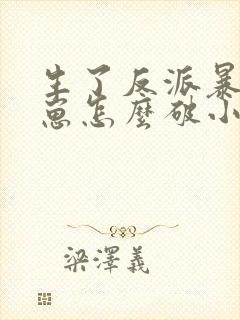 生了反派暴
崽怎麼破小
梁澤義